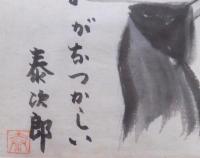 がなつかしい
泰次郎